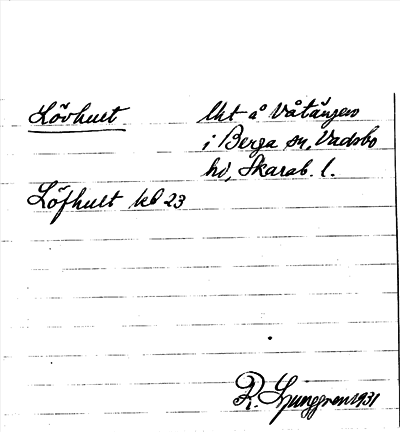 Lövhult
lht å Våtängen
i Berga sn, Vadsbo
hd, Skarab. l.
Löfhult kb 23
R. Ljunggren 1931